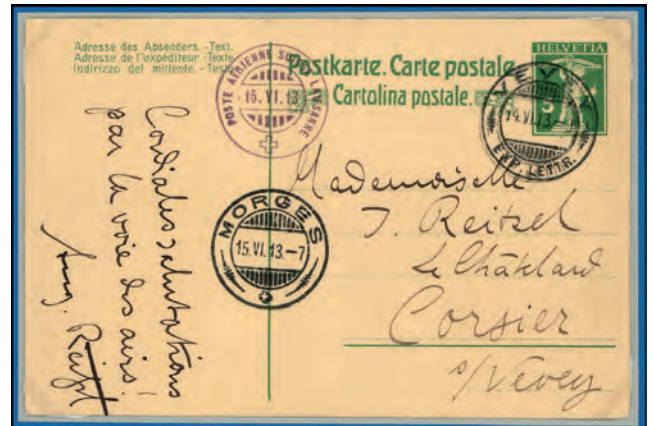 Adresse des Absenders.-Text.
Adresse de l'expéditeur.-Texte.
Indirizzo del mittente.-Testo.
Postkarte. Carte postale.
Cartolina postale.
HELVETIA
5
POSTE AÉRIENNE SUISSE LAUSANNE
15.VI.13
VEVEY
14.VI.13.
EXP. LETTR.
MORGES
15.VI.13.-7
Cordiales salutations
par la voie des airs!
Aug. Reitzel
Mademoiselle
J. Reitzel
Le Châtelard
Corsier
s/Vevey